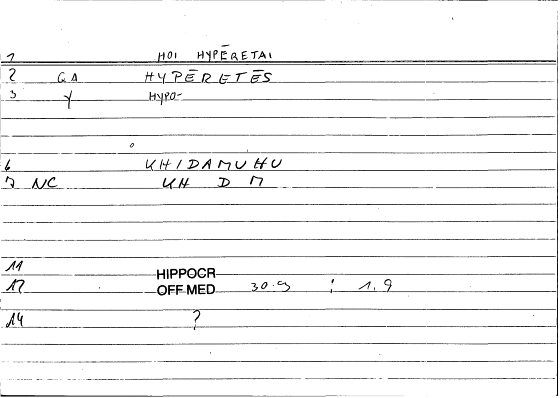 1 HOI HYPĒRETAI
2 GA HYPĒRETĒS
3 Y HYPO-
6 KHIDAMUHU
7 NC KH D M
11 HIPPOCR
12 OFF MED 30.9 : 1.9
14 ?